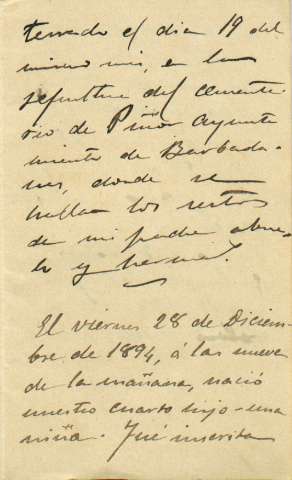 terrado el dia 19 del
mismo mes, en la
sepultura del cemente
rio de Piñor Ayunta
miento de Barbada-
nes, donde se
hallan los restos
de mi padre abue-
lo y herma
El viernes 28 de Diciem-
bre de 1894, á las nueve
de la mañana, nació
nuestro cuarto hijo-una
niña. Fué inscrita